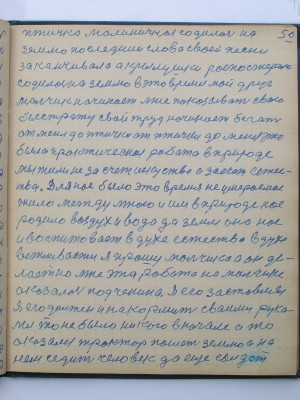 50
птичка малиничка садилась на
землю последнии слова своей песни
заканчивала а крилушки роспостюрала
садилась на землю в это время мой друг
мальчик начинает мне показывать свою
быстрату свой труд начинает бегать
от меня до птички от птички до меня это
была практическая работа в природе
мы жили не за счет искуство а за счет естес-
тва. Для нас было это время не умераемое
жило между мною и им в природе нас
родило воздух и вода да земля оно нас
и воспитывает в духе естества в духе
я прошу мальчика он де-
лает то мне эта работа на мальчике
оказалась подчинена. Я его заставляю
Я его должен и накормит своими рука-
ми то не было никого вначале а то
оказался трактор пашет землю а на
нем седит человек да еще